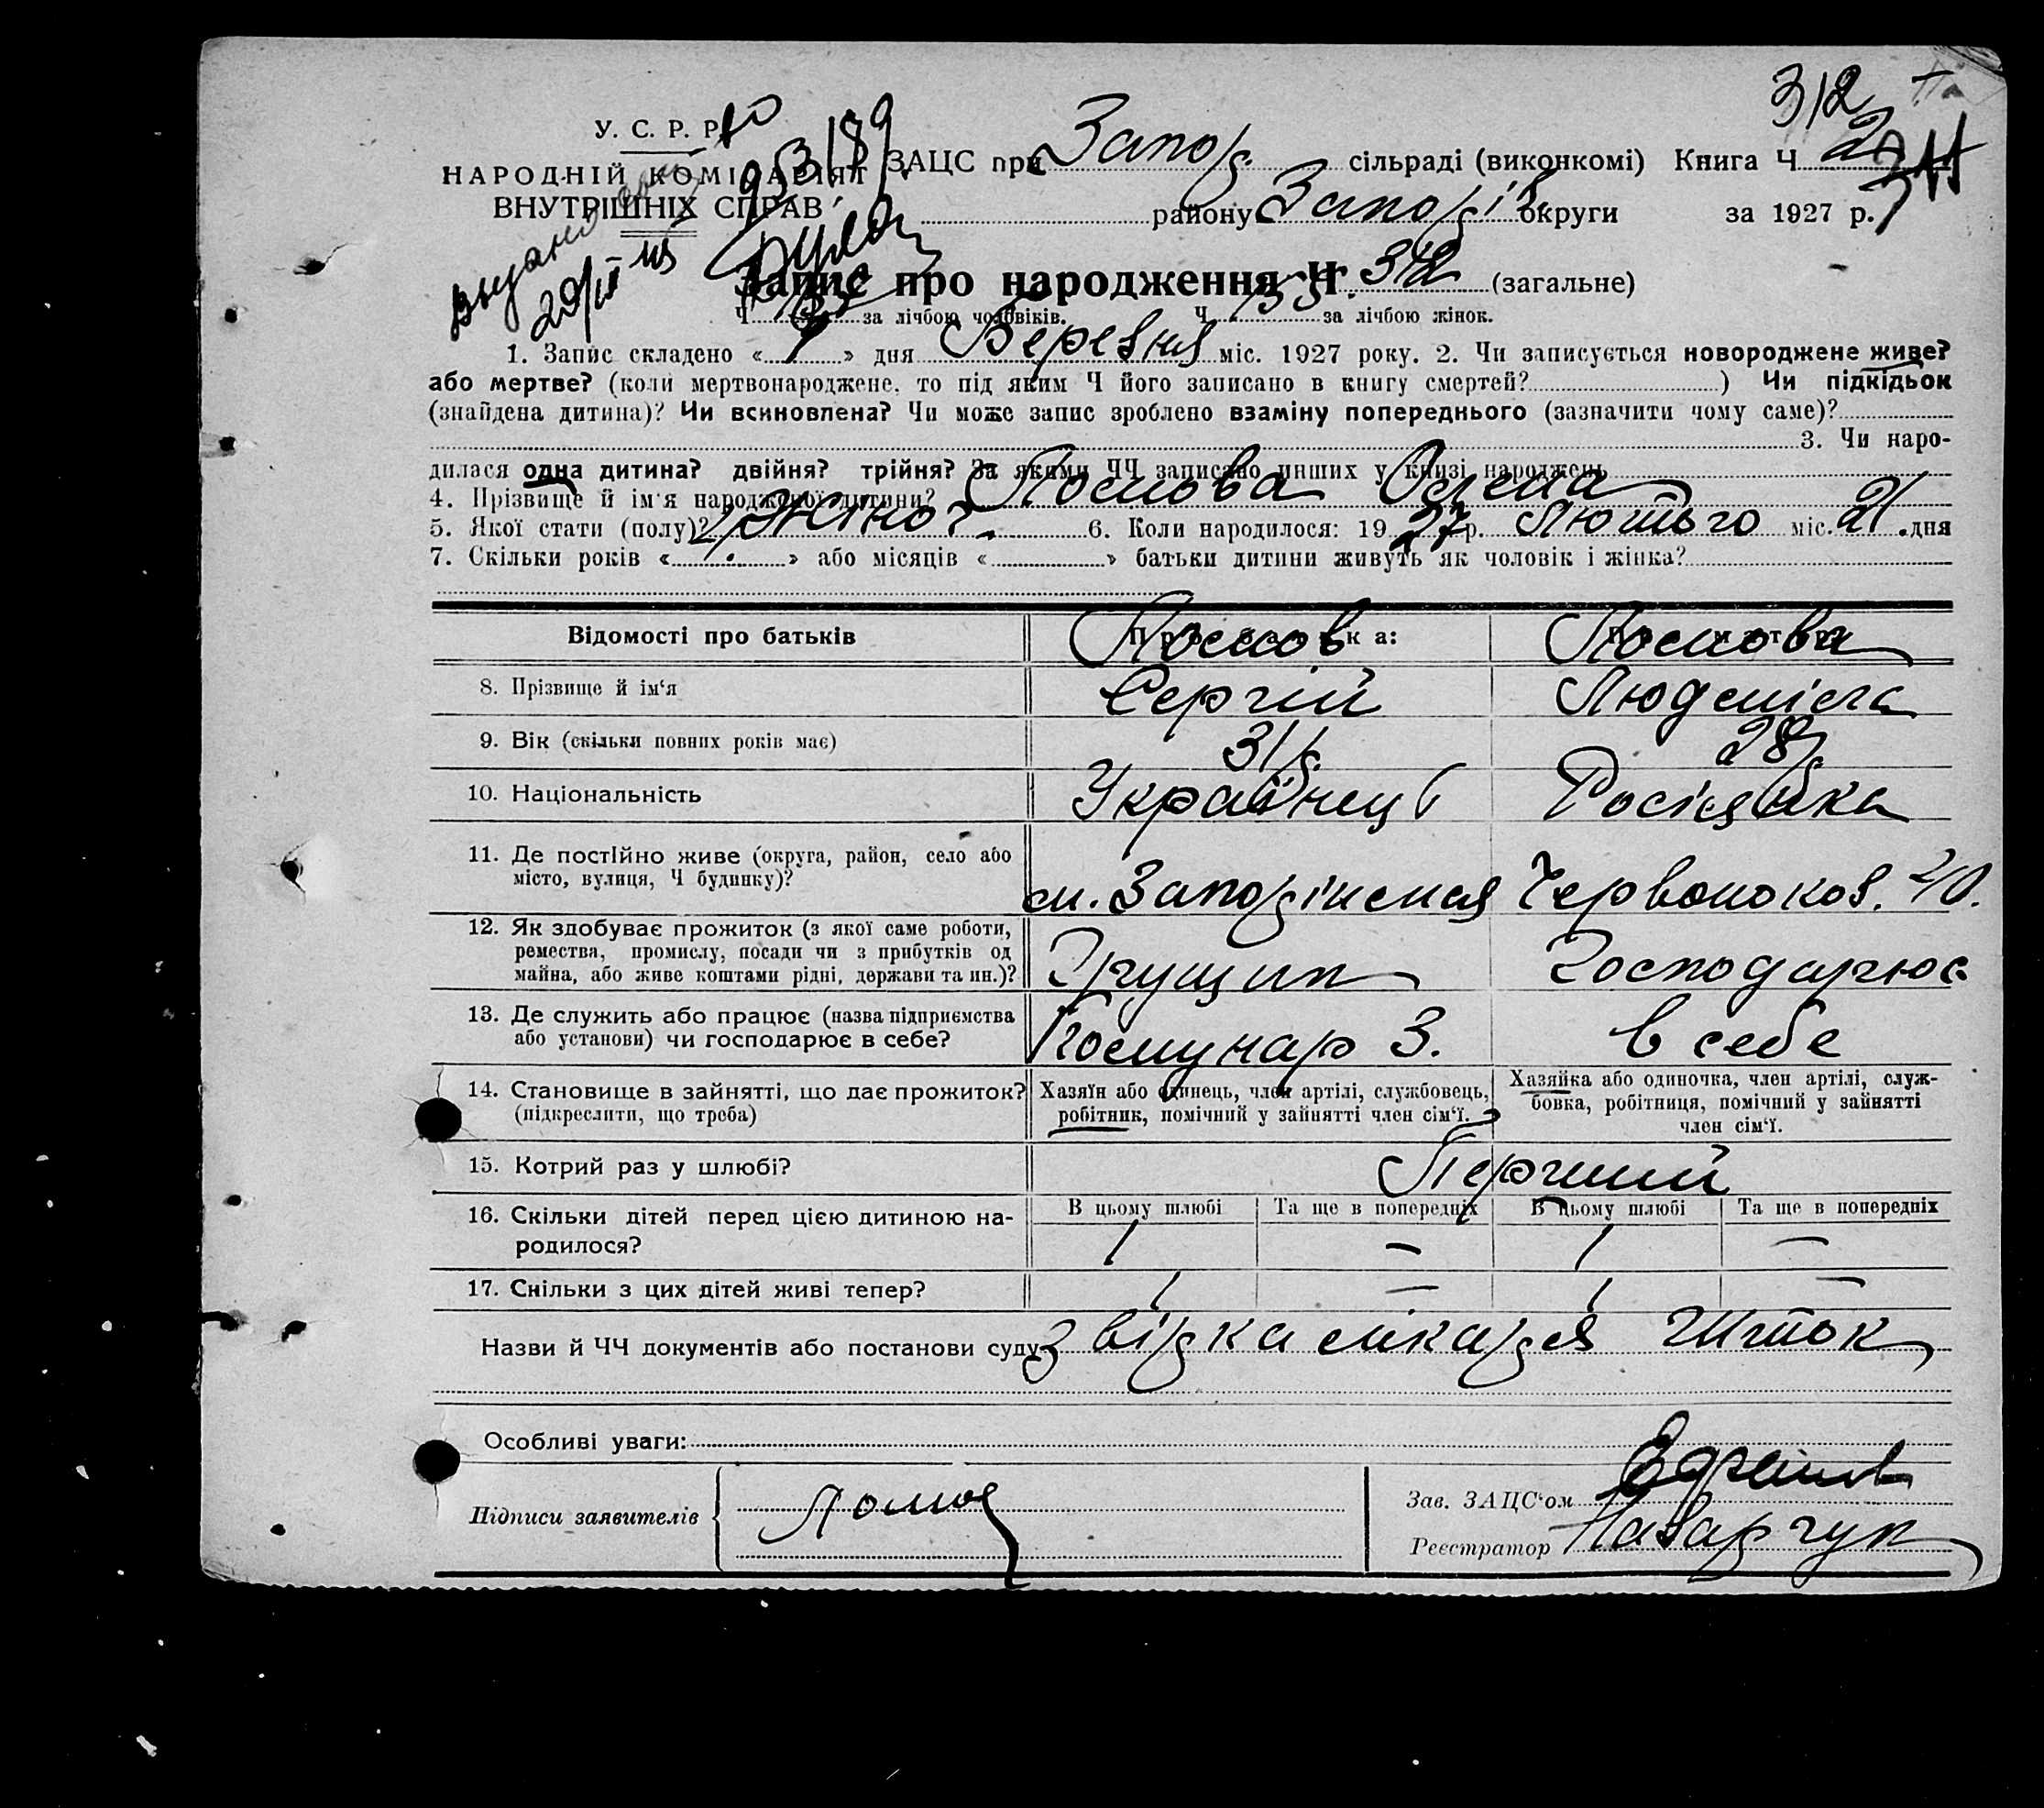 312
У. С. Р. Р.
НАРОДНІЙ КОМІСАРІЯТ
ВНУТРІШНІХ СПРАВ
953189
видано
29/III
ЗАЦС при Запоріз. сільраді (виконкомі) Книга Ч. 2
району Запоріз округи за 1927 р.
311
Запис про народження Ч. 312 (загальне)
Ч. за лічбою чоловіків. Ч. 155 за лічбою жінок.
1. Запис складено « 9 » дня Березня міс. 1927 року. 2. Чи записується новороджене живе?
або мертве? (коли мертвонароджене, то під яким Ч його записано в книгу смертей? ) Чи підкідьок
(знайдена дитина)? Чи всиновлена? Чи може запис зроблено взаміну попереднього (зазначити чому саме)?
3. Чи наро-
дилася одна дитина? двійня? трійня? За якими ЧЧ записано инших у книзі народжень
4. Прізвище й ім'я народженої дитини?
5. Якої стати (полу)? Жіноч. 6. Коли народилося: 1927 р. Лютого міс. 21 дня
7. Скільки років « » або місяців « » батьки дитини живуть як чоловік і жінка?
Відомості про батьків Про батька: Про матір:
8. Прізвище й ім'я Сергій Людміла
9. Вік (скільки повних років має) 31 р. 28 р.
10. Національність Українець Росіянка
11. Де постійно живе (округа, район, село або
місто, вулиця, Ч будинку)? м. Запоріжжя Червонокоз. 40.
12. Як здобуває прожиток (з якої саме роботи,
ремества, промислу, посади чи з прибутків од
майна, або живе коштами рідні, держави та ин.)? Господарює
13. Де служить або працює (назва підприємства
або установи) чи господарює в себе? Комунар З. в себе
14. Становище в зайнятті, що дає прожиток?
(підкреслити, що треба)
Хазяїн або одинець, член артілі, службовець,
робітник, помічний у зайнятті член сім'ї.
Хазяйка або одиночка, член артілі, служ-
бовка, робітниця, помічний у зайнятті
член сім'ї.
15. Котрий раз у шлюбі? Перший
16. Скільки дітей перед цією дитиною на-
родилося?
В цьому шлюбі Та ще в попередніх В цьому шлюбі Та ще в попередніх
1 — 1 —
17. Скільки з цих дітей живі тепер? 1 — 1 —
Назви й ЧЧ документів або постанови суду
Особливі уваги:
Підписи заявителів
Зав. ЗАЦС'ом
Реєстратор Назарчук